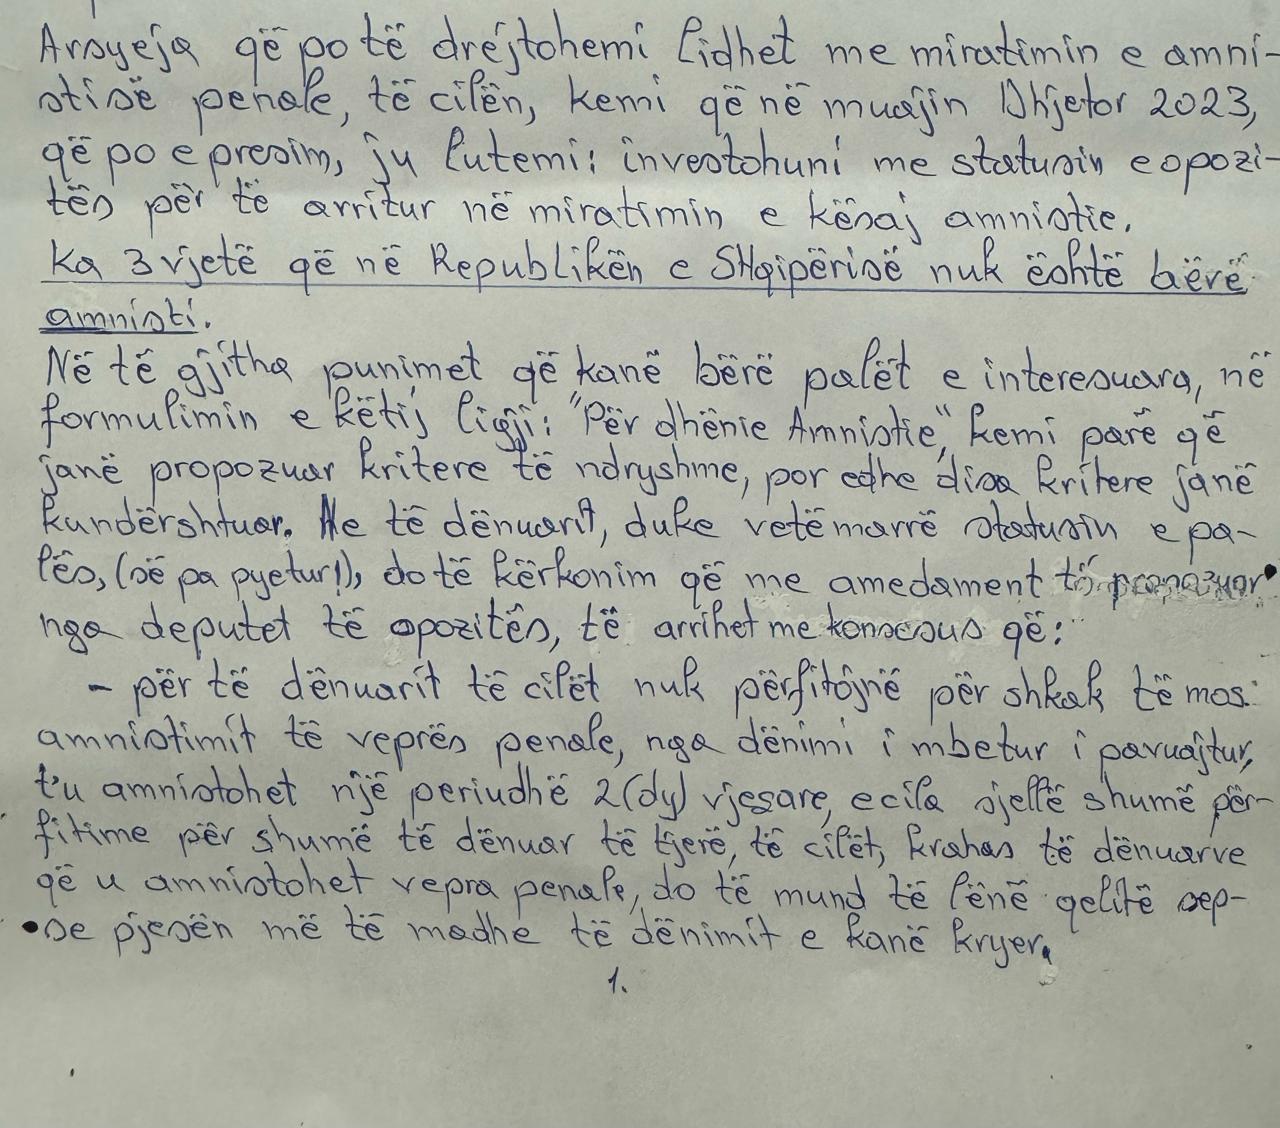 Arsyeja që po të drejtohemi lidhet me miratimin e amni-
stisë penale, të cilën, kemi që në muajin Dhjetor 2023,
që po e presim, ju lutemi: investohuni me statusin e opozi-
tës për të arritur në miratimin e kësaj amnistie.
Ka 3 vjetë që në Republikën e SHqipërisë nuk është bërë
amnisti.
Në të gjitha punimet që kanë bërë palët e interesuara, në
formulimin e këtij ligji: "Për dhënie Amnistie", kemi parë që
janë propozuar kritere të ndryshme, por edhe disa kritere janë
kundërshtuar. Ne të dënuarit, duke vetëmarrë statusin e pa-
lës, (së pa pyetur!), do të kërkonim që me amedament të propozuar
nga deputet të opozitës, të arrihet me konsesus që:
- për të dënuarit të cilët nuk përfitojnë për shkak të mos
amnistimit të veprës penale, nga dënimi i mbetur i pavuajtur,
t'u amnistohet një periudhë 2(dy) vjeçare, e cila sjellë shumë për-
fitime për shumë të dënuar të tjerë, të cilët, krahas të dënuarve
që u amnistohet vepra penale, do të mund të lënë qelitë sep-
se pjesën më të madhe të dënimit e kanë kryer.
1.